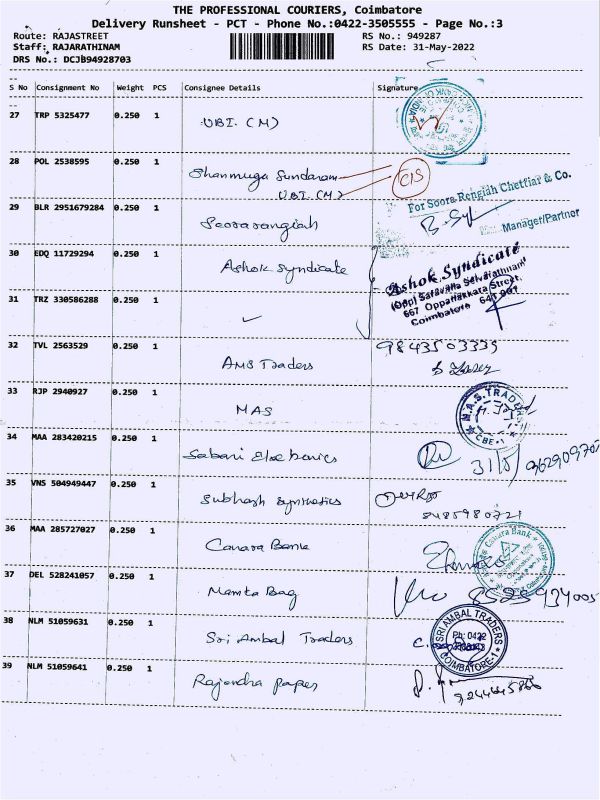 THE PROFESSIONAL COURIERS, Coimbatore
Delivery Runsheet - PCT - Phone No.:0422-3505555 - Page No.:3
Route: RAJASTREET RS No.: 949287
Staff: RAJARATHINAM RS Date: 31-May-2022
DRS No.: DCJB94928703
S No Consignment No Weight PCS Consignee Details Signature
27 TRP 5325477 0.250 1 UBI. (M)
28 POL 2538595 0.250 1 Shanmuga Sundaram
UBI (M)
29 BLR 2951679284 0.250 1 Soorarangiah
For Soora Rengiah Chettiar & Co.
Manager/Partner
30 EDQ 11729294 0.250 1 Ashok Syndicate
Ashok Syndicate
(Opp) Saravana Selvarathnam
667 Oppanakkara Street,
Coimbatore 641 001
31 TRZ 330586288 0.250 1
32 TVL 2563529 0.250 1 AMS Traders 9843503335
33 RJP 2940927 0.250 1 MAS
M.A.S. TRADERS
CBE-1
34 MAA 283420215 0.250 1 Sabari Electronics 31/5/
35 VNS 504949447 0.250 1 Subhash Synthetics
36 MAA 285727027 0.250 1 Canara Bank
Canara Bank
37 DEL 528241057 0.250 1 Mamta Bag
38 NLM 51059631 0.250 1 Sri Ambal Traders
SRI AMBAL TRADERS
Ph: 0422
COIMBATORE-1
39 NLM 51059641 0.250 1 Rajendra papers